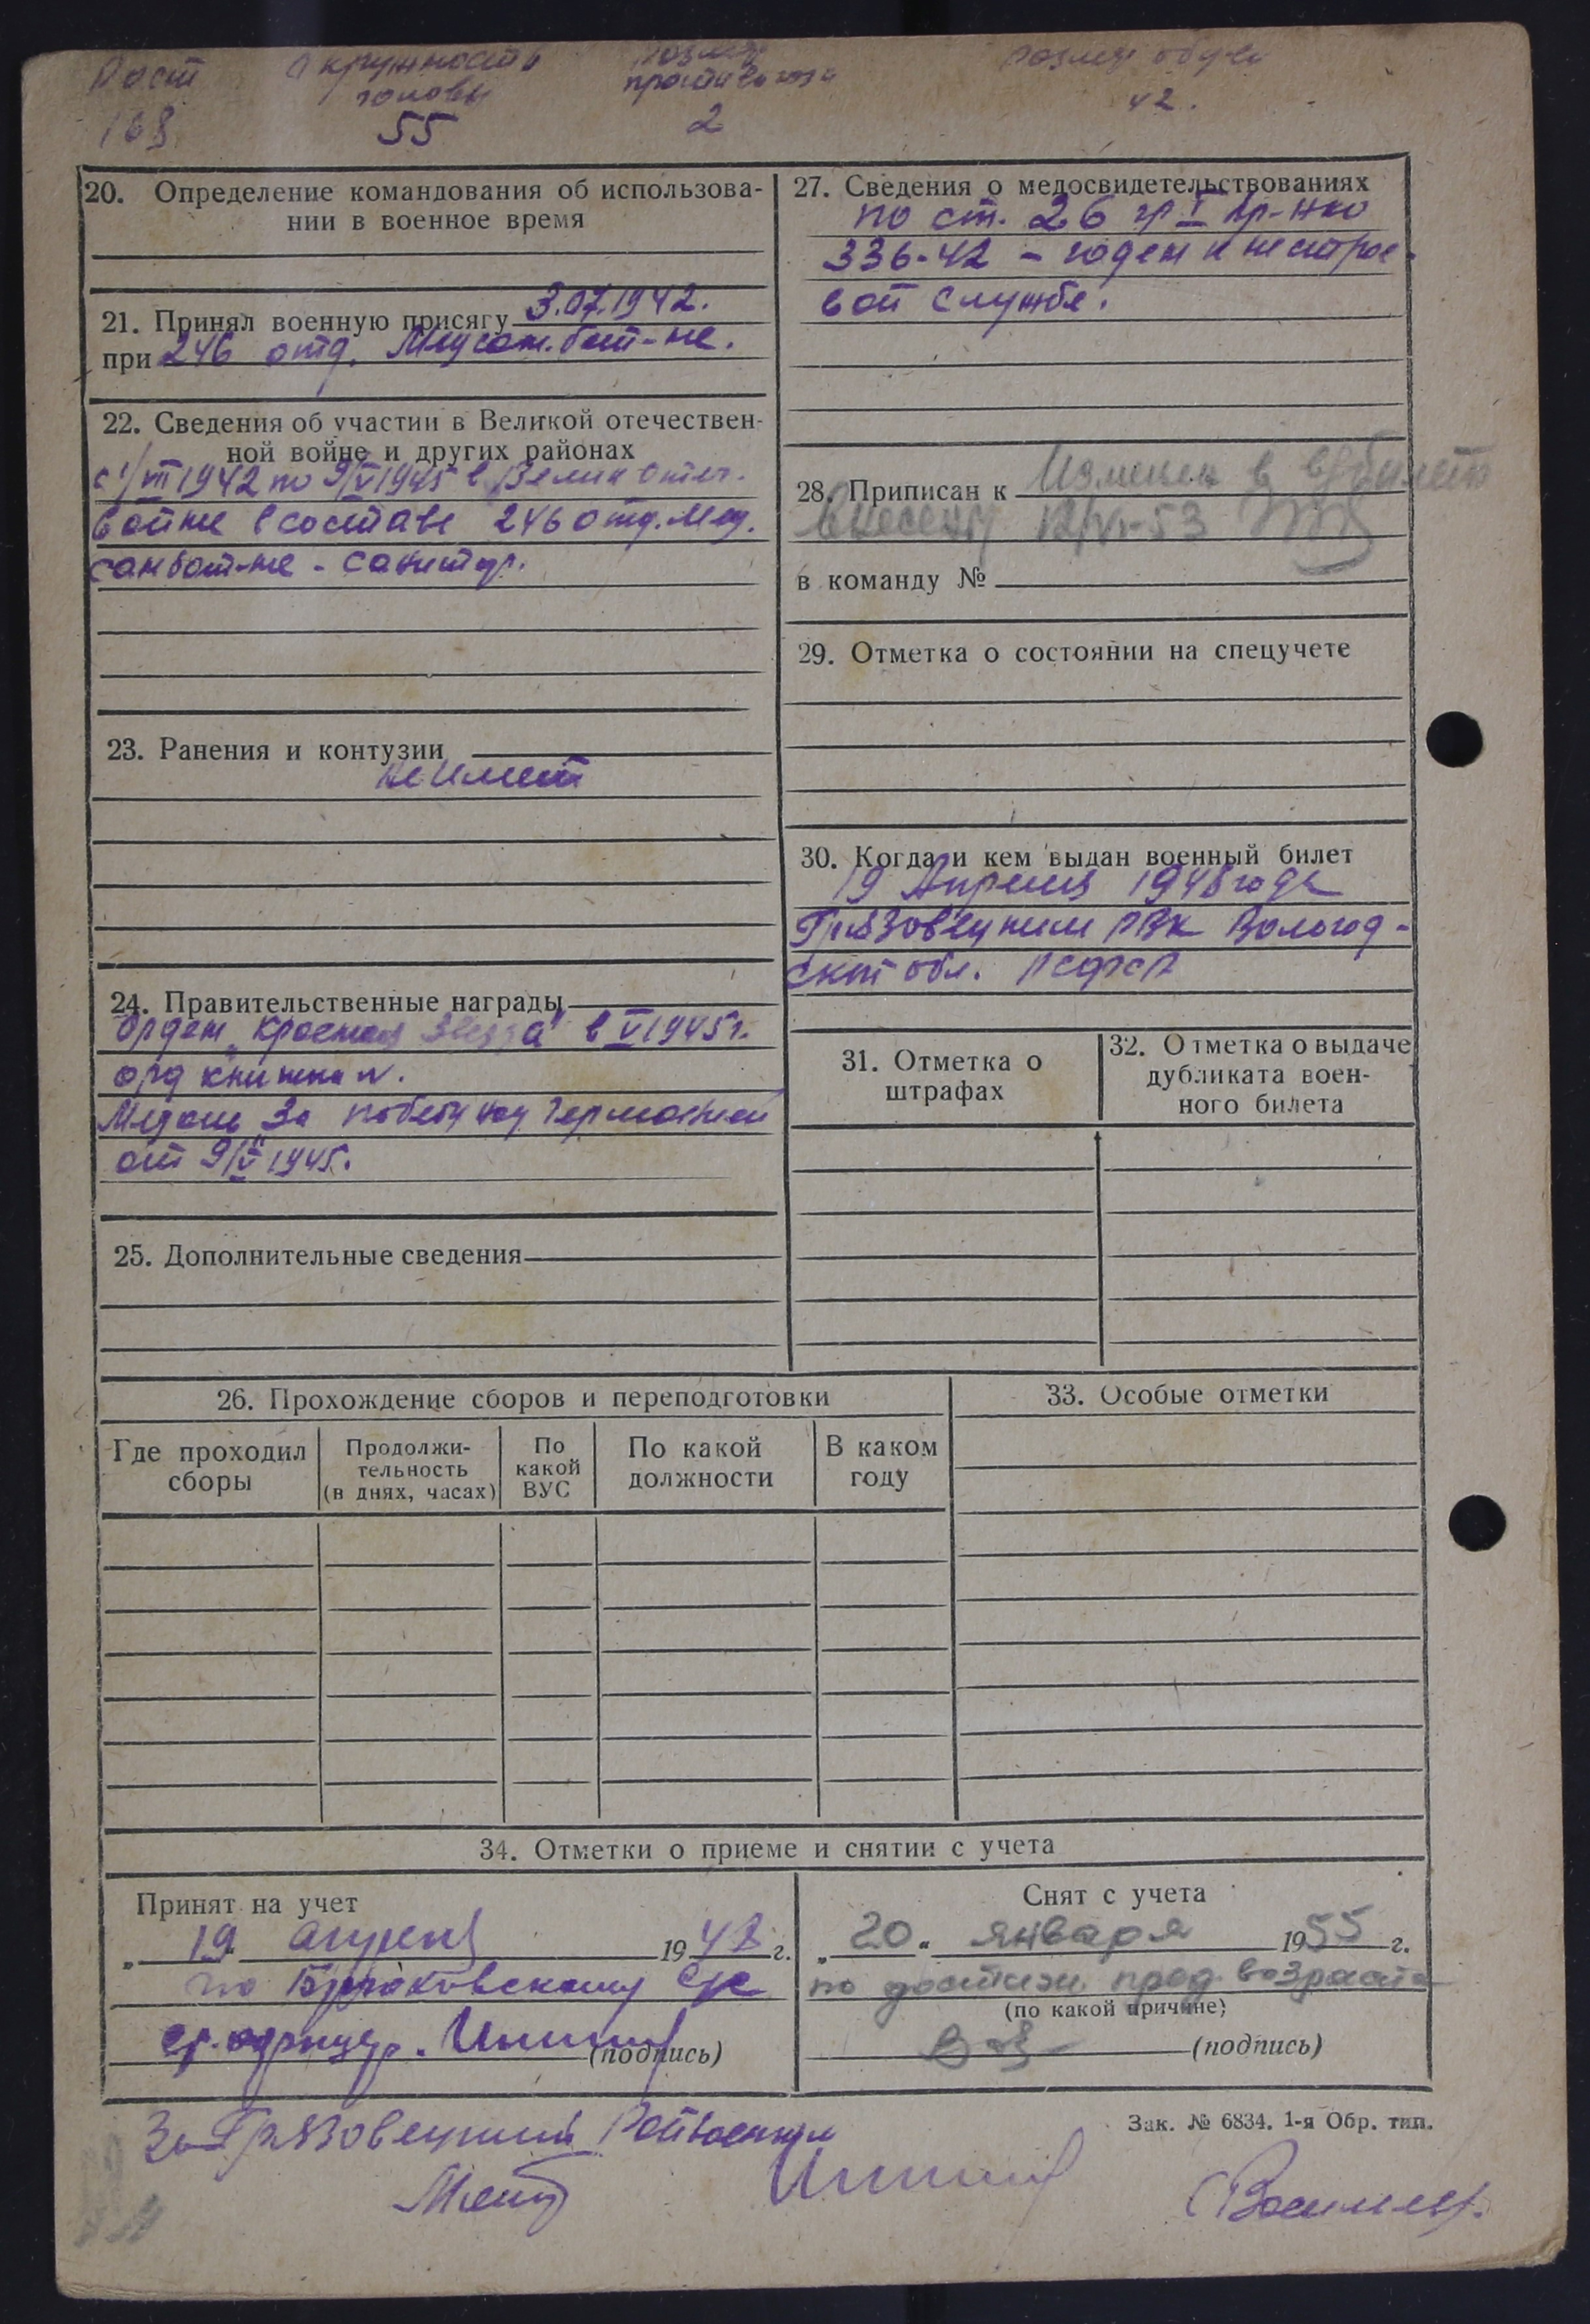 Рост
168
Окружность
головы
55
Размер
противогаза
2
размер обуви
42.
20. Определение командования об использова-
нии в военное время
21. Принял военную присягу 3.07.1942.
при 246 отд. Медсан.бат-не.
22. Сведения об участии в Великой отечествен-
ной войне и других районах
с 1/III 1942 по 9/V 1945 в Велик отеч.
войне в составе 246 отд. Мед.
санбат-не - санитар.
23. Ранения и контузии
не имеет
24. Правительственные награды
Орден „Красная Звезда" в V 1945 г.
орд книжка №.
Медаль За победу над Германией
от 9/V 1945.
25. Дополнительные сведения
27. Сведения о медосвидетельствованиях
по ст. 26 гр I Пр-НКО
336-42 - годен к нестрое-
вой службе.
28. Приписан к Измен в в/билете
внесены 12/VI-53
в команду №
29. Отметка о состоянии на спецучете
30. Когда и кем выдан военный билет
19 Апреля 1948 года
Грязовецким РВК Вологод-
ской обл. РСФСР
31. Отметка о
штрафах
32. Отметка о выдаче
дубликата воен-
ного билета
26. Прохождение сборов и переподготовки
Где проходил
сборы
Продолжи-
тельность
(в днях, часах)
По
какой
ВУС
По какой
должности
В каком
году
33. Особые отметки
34. Отметки о приеме и снятии с учета
Принят на учет
„ 19 " апреля 1948 г.
по
(подпись)
Снят с учета
„ 20 " января 1955 г.
по достиж. пред. возраста
(по какой причине)
(подпись)
За Грязовецкий Райвоенком
Зак. № 6834. 1-я Обр. тип.